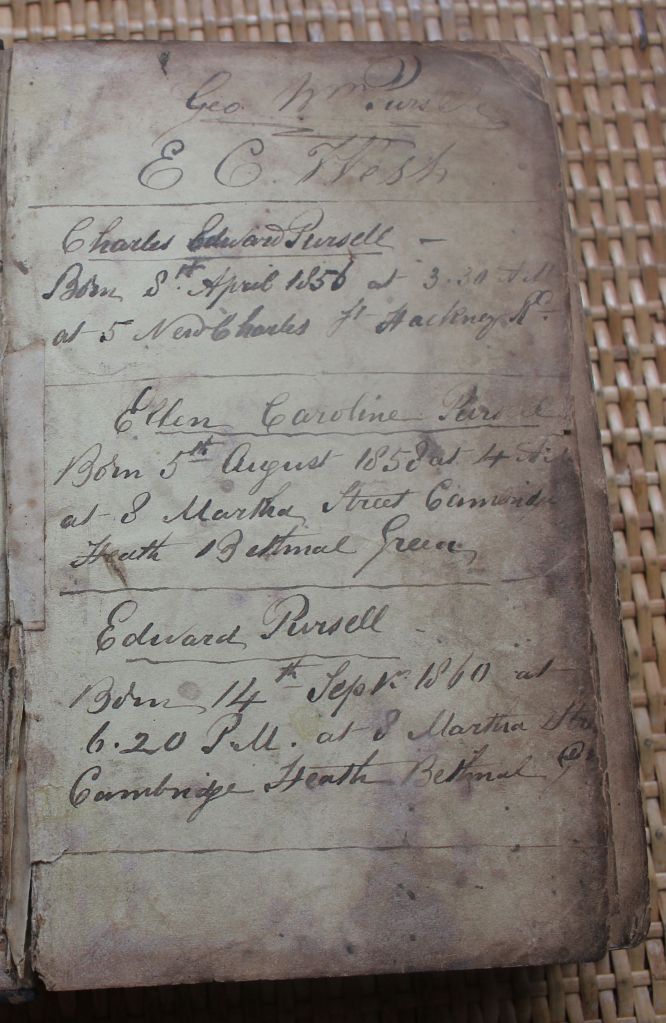 Geo Wm Pursell
E C West
Charles Edward Pursell –
Born 8th April 1856 at 3.30 AM
at 5 New Charles St Hackney Rd
Ellen Caroline Pursell
Born 5th August 1858 at 4 AM
at 8 Martha Street Cambridge
Heath Bethnal Green
Edward Pursell –
Born 14th Sepr 1860 at
6.20 P.M. at 8 Martha Stre
Cambridge Heath Bethnal G